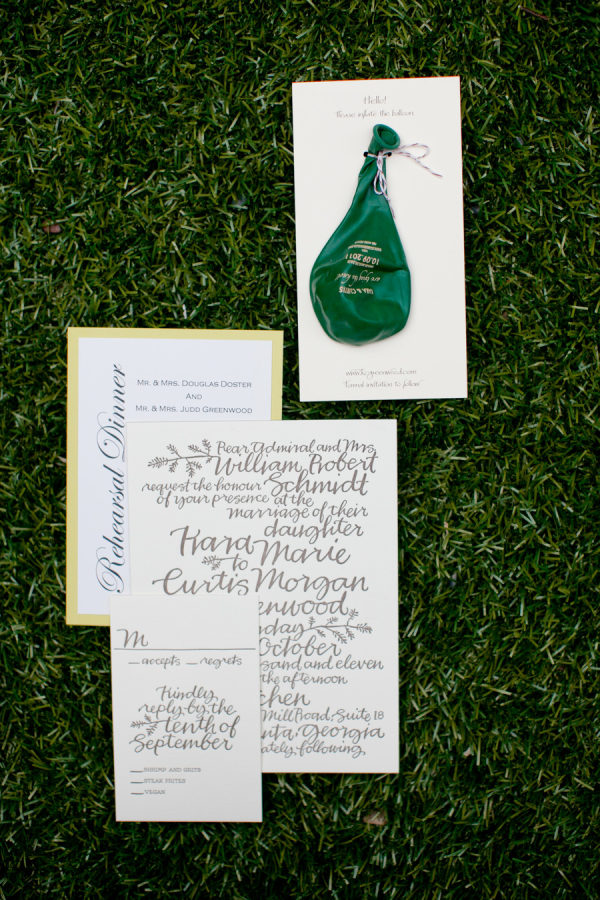 Hello!
Please inflate this balloon.
& CURTIS
are tying the knot!
10.09.2011
"formal invitation to follow"
Rehearsal Dinner
MR. & MRS. DOUGLAS DOSTER
AND
MR. & MRS. JUDD GREENWOOD
Rear Admiral and Mrs.
William Robert
Schmidt
request the honour
of your presence at the
marriage of their
daughter
Kara Marie
to
Curtis Morgan
enwood
nday
October
sand and eleven
the afternoon
chen
Mill Road, Suite 18
nta, Georgia
ately following
M
accepts regrets
Kindly
reply by the
tenth of
September
SHRIMP AND GRITS
STEAK FRITES
VEGAN